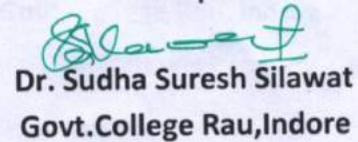 Dr. Sudha Suresh Silawat
Govt.College Rau,Indore